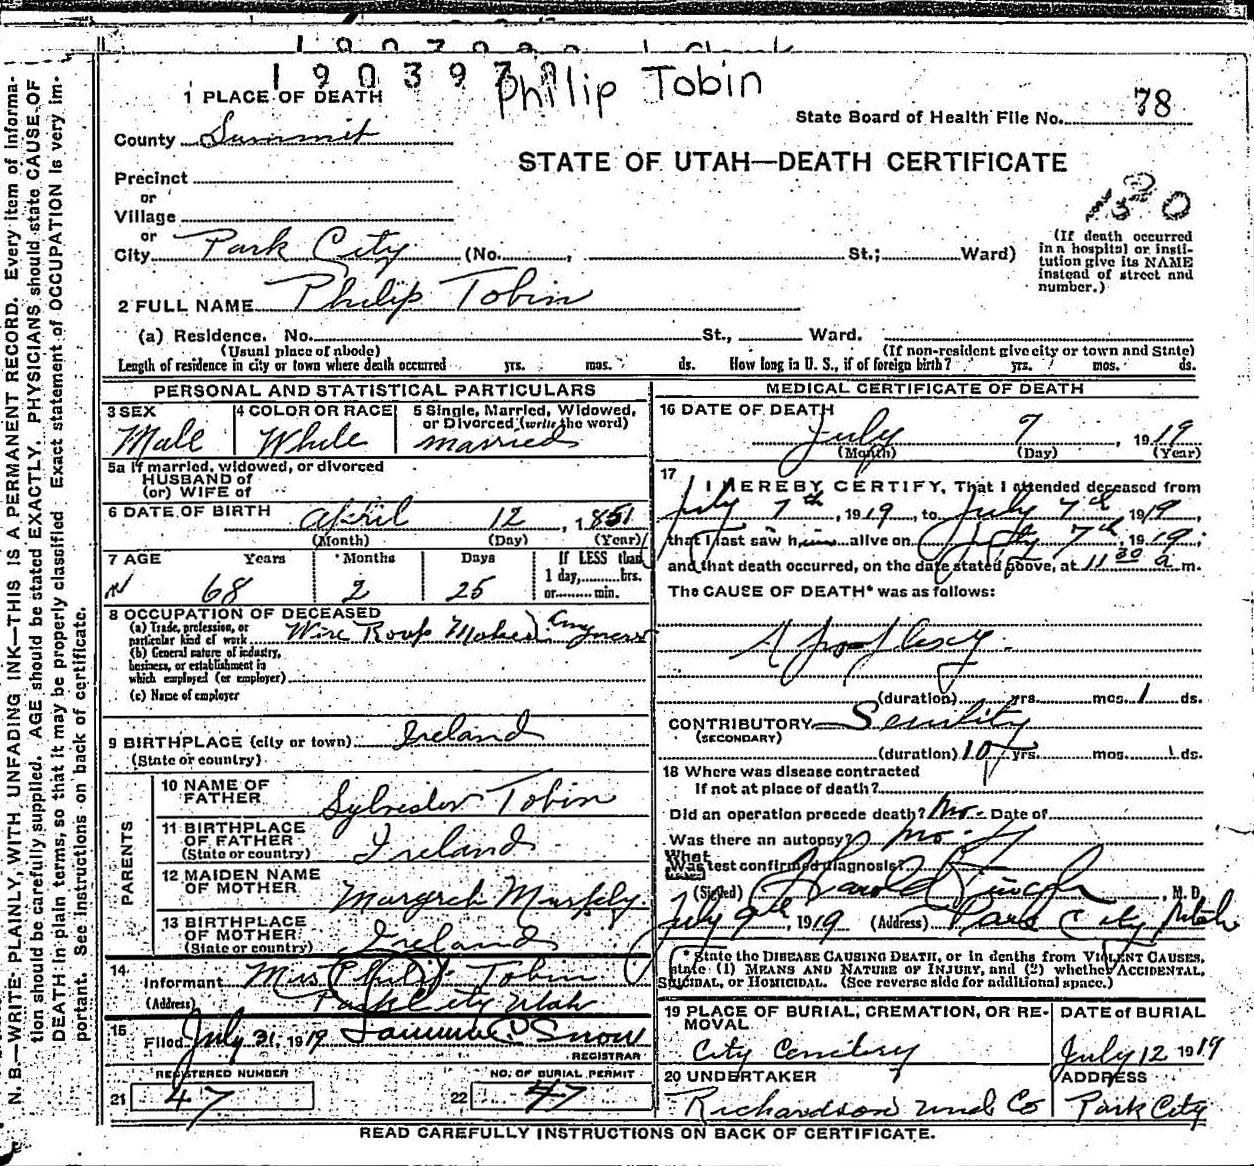 Philip Tobin
1 PLACE OF DEATH
State Board of Health File No. 78
County Summit
STATE OF UTAH—DEATH CERTIFICATE
Precinct
or
Village
or
City Park City (No. , St.; Ward)
(If death occurred in a hospital or insti-tution give its NAME instead of street and number.)
2 FULL NAME Philip Tobin
(a) Residence. No. St., Ward.
(Usual place of abode) (If non-resident give city or town and State)
Length of residence in city or town where death occurred yrs. mos. ds. How long in U. S., if of foreign birth? yrs. mos. ds.
PERSONAL AND STATISTICAL PARTICULARS
3 SEX 4 COLOR OR RACE 5 Single, Married, Widowed, or Divorced (write the word)
Male White married
5a If married, widowed, or divorced
HUSBAND of
(or) WIFE of
6 DATE OF BIRTH April 12, 1851
(Month) (Day) (Year)
7 AGE Years Months Days If LESS than
1 day, hrs.
or min.
68 2 25
8 OCCUPATION OF DECEASED
(a) Trade, profession, or particular kind of work Wire Roop Maker
(b) General nature of industry, business, or establishment in which employed (or employer)
(c) Name of employer
9 BIRTHPLACE (city or town) Ireland
(State or country)
PARENTS
10 NAME OF FATHER Sylvester Tobin
11 BIRTHPLACE OF FATHER Ireland
(State or country)
12 MAIDEN NAME OF MOTHER Margreh Murphy
13 BIRTHPLACE OF MOTHER Ireland
(State or country)
14 Informant Mrs Philip Tobin
(Address) Park City Utah
15 Filed July 31, 1919 Snow
REGISTRAR
REGISTERED NUMBER NO. OF BURIAL PERMIT
21 47 22 47
MEDICAL CERTIFICATE OF DEATH
16 DATE OF DEATH
July 7, 1919
(Month) (Day) (Year)
17 I HEREBY CERTIFY, That I attended deceased from
July 7th, 1919, to July 7th, 1919,
that I last saw him alive on July 7th, 1919;
and that death occurred, on the date stated above, at 11 30 a m.
The CAUSE OF DEATH* was as follows:
Apoplexy.
(duration) yrs. mos. 1 ds.
CONTRIBUTORY Senility
(SECONDARY)
(duration) 10 yrs. mos. ds.
18 Where was disease contracted
If not at place of death?
Did an operation precede death? No. Date of
Was there an autopsy? No.
What test confirmed diagnosis?
(Signed) Harold , M. D.
July 9th, 1919 (Address) Park City Utah
* State the DISEASE CAUSING DEATH, or in deaths from VIOLENT CAUSES,
state (1) MEANS AND NATURE OF INJURY, and (2) whether ACCIDENTAL,
SUICIDAL, or HOMICIDAL. (See reverse side for additional space.)
19 PLACE OF BURIAL, CREMATION, OR RE-MOVAL DATE of BURIAL
City Cemetery July 12 1919
20 UNDERTAKER ADDRESS
Richardson Und Co Park City
READ CAREFULLY INSTRUCTIONS ON BACK OF CERTIFICATE.
N. B.—WRITE PLAINLY, WITH UNFADING INK—THIS IS A PERMANENT RECORD. Every item of informa-
tion should be carefully supplied. AGE should be stated EXACTLY. PHYSICIANS should state CAUSE OF
DEATH in plain terms, so that it may be properly classified. Exact statement of OCCUPATION is very im-
portant. See instructions on back of certificate.